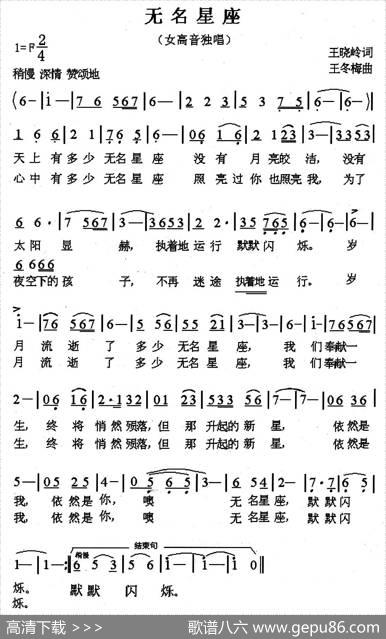 无名星座
(女高音独唱)
1=F 2/4
王晓岭词
王冬梅曲
稍慢 深情 赞颂地
(6-|1-|7 6 567|6-|3 2 2 1 2|3 5 7 5|6-|6-)|
1 6 6|2 1|7 6 5|6-|0 6 1 6|2 1 2 3|3-|3 3 5 3|
天上有多少无名星座 没有月亮皎洁,没有
心中有多少无名星座 照亮过你也照亮我,为了
6 6·|7 5 6 7|3-|3 6 5 3|2 2·|3 5 7 6 5|6-|6-|
太阳显赫,执着地运行默默闪烁。岁
6 6 6 6 6
夜空下的孩子,不再迷途执着地运行。岁
1-|7 6 5 6 7|6-|5 5 6|5 5 2 1|3-|3-|6-|1-|7 6 5 6 7|
月流逝了多少无名星座,我们奉献一
月流逝了多少无名星座,我们奉献一
2-|0 6 1 6|2·1 3 2|0 1 2 3|5 5 3 5 6|7-|7-|0 6 3 6|
生,终将悄然殒落,但那升起的新星,依然是
生,终将悄然殒落,但那升起的新星,依然是
5-|0 5 2 5|4-|0 5 6 5|3-|6 5 4|2-|7·7 6 5|
我,依然是你,噢 无名星座,默默闪
我,依然是你,噢 无名星座,默默闪
稍慢
结束句
1-|1-:‖6 5 3|5 6|1-|1-|1-‖
烁。默默闪烁。
烁。
高清下载 >>>
歌谱八六 www.gepu86.com